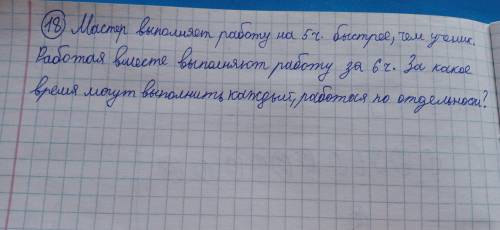 (18) Мастер выполняет работу на 5 ч. быстрее, чем ученик.
Работая вместе выполняют работу за 6 ч. За какое
время могут выполнить каждый, работая по отдельности?